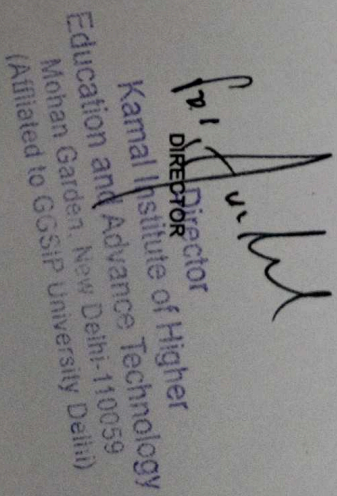 DIRECTOR
Director
Kamal Institute of Higher
Education and Advance Technology
Mohan Garden, New Delhi-110059
(Affiliated to GGSIP University Delhi)